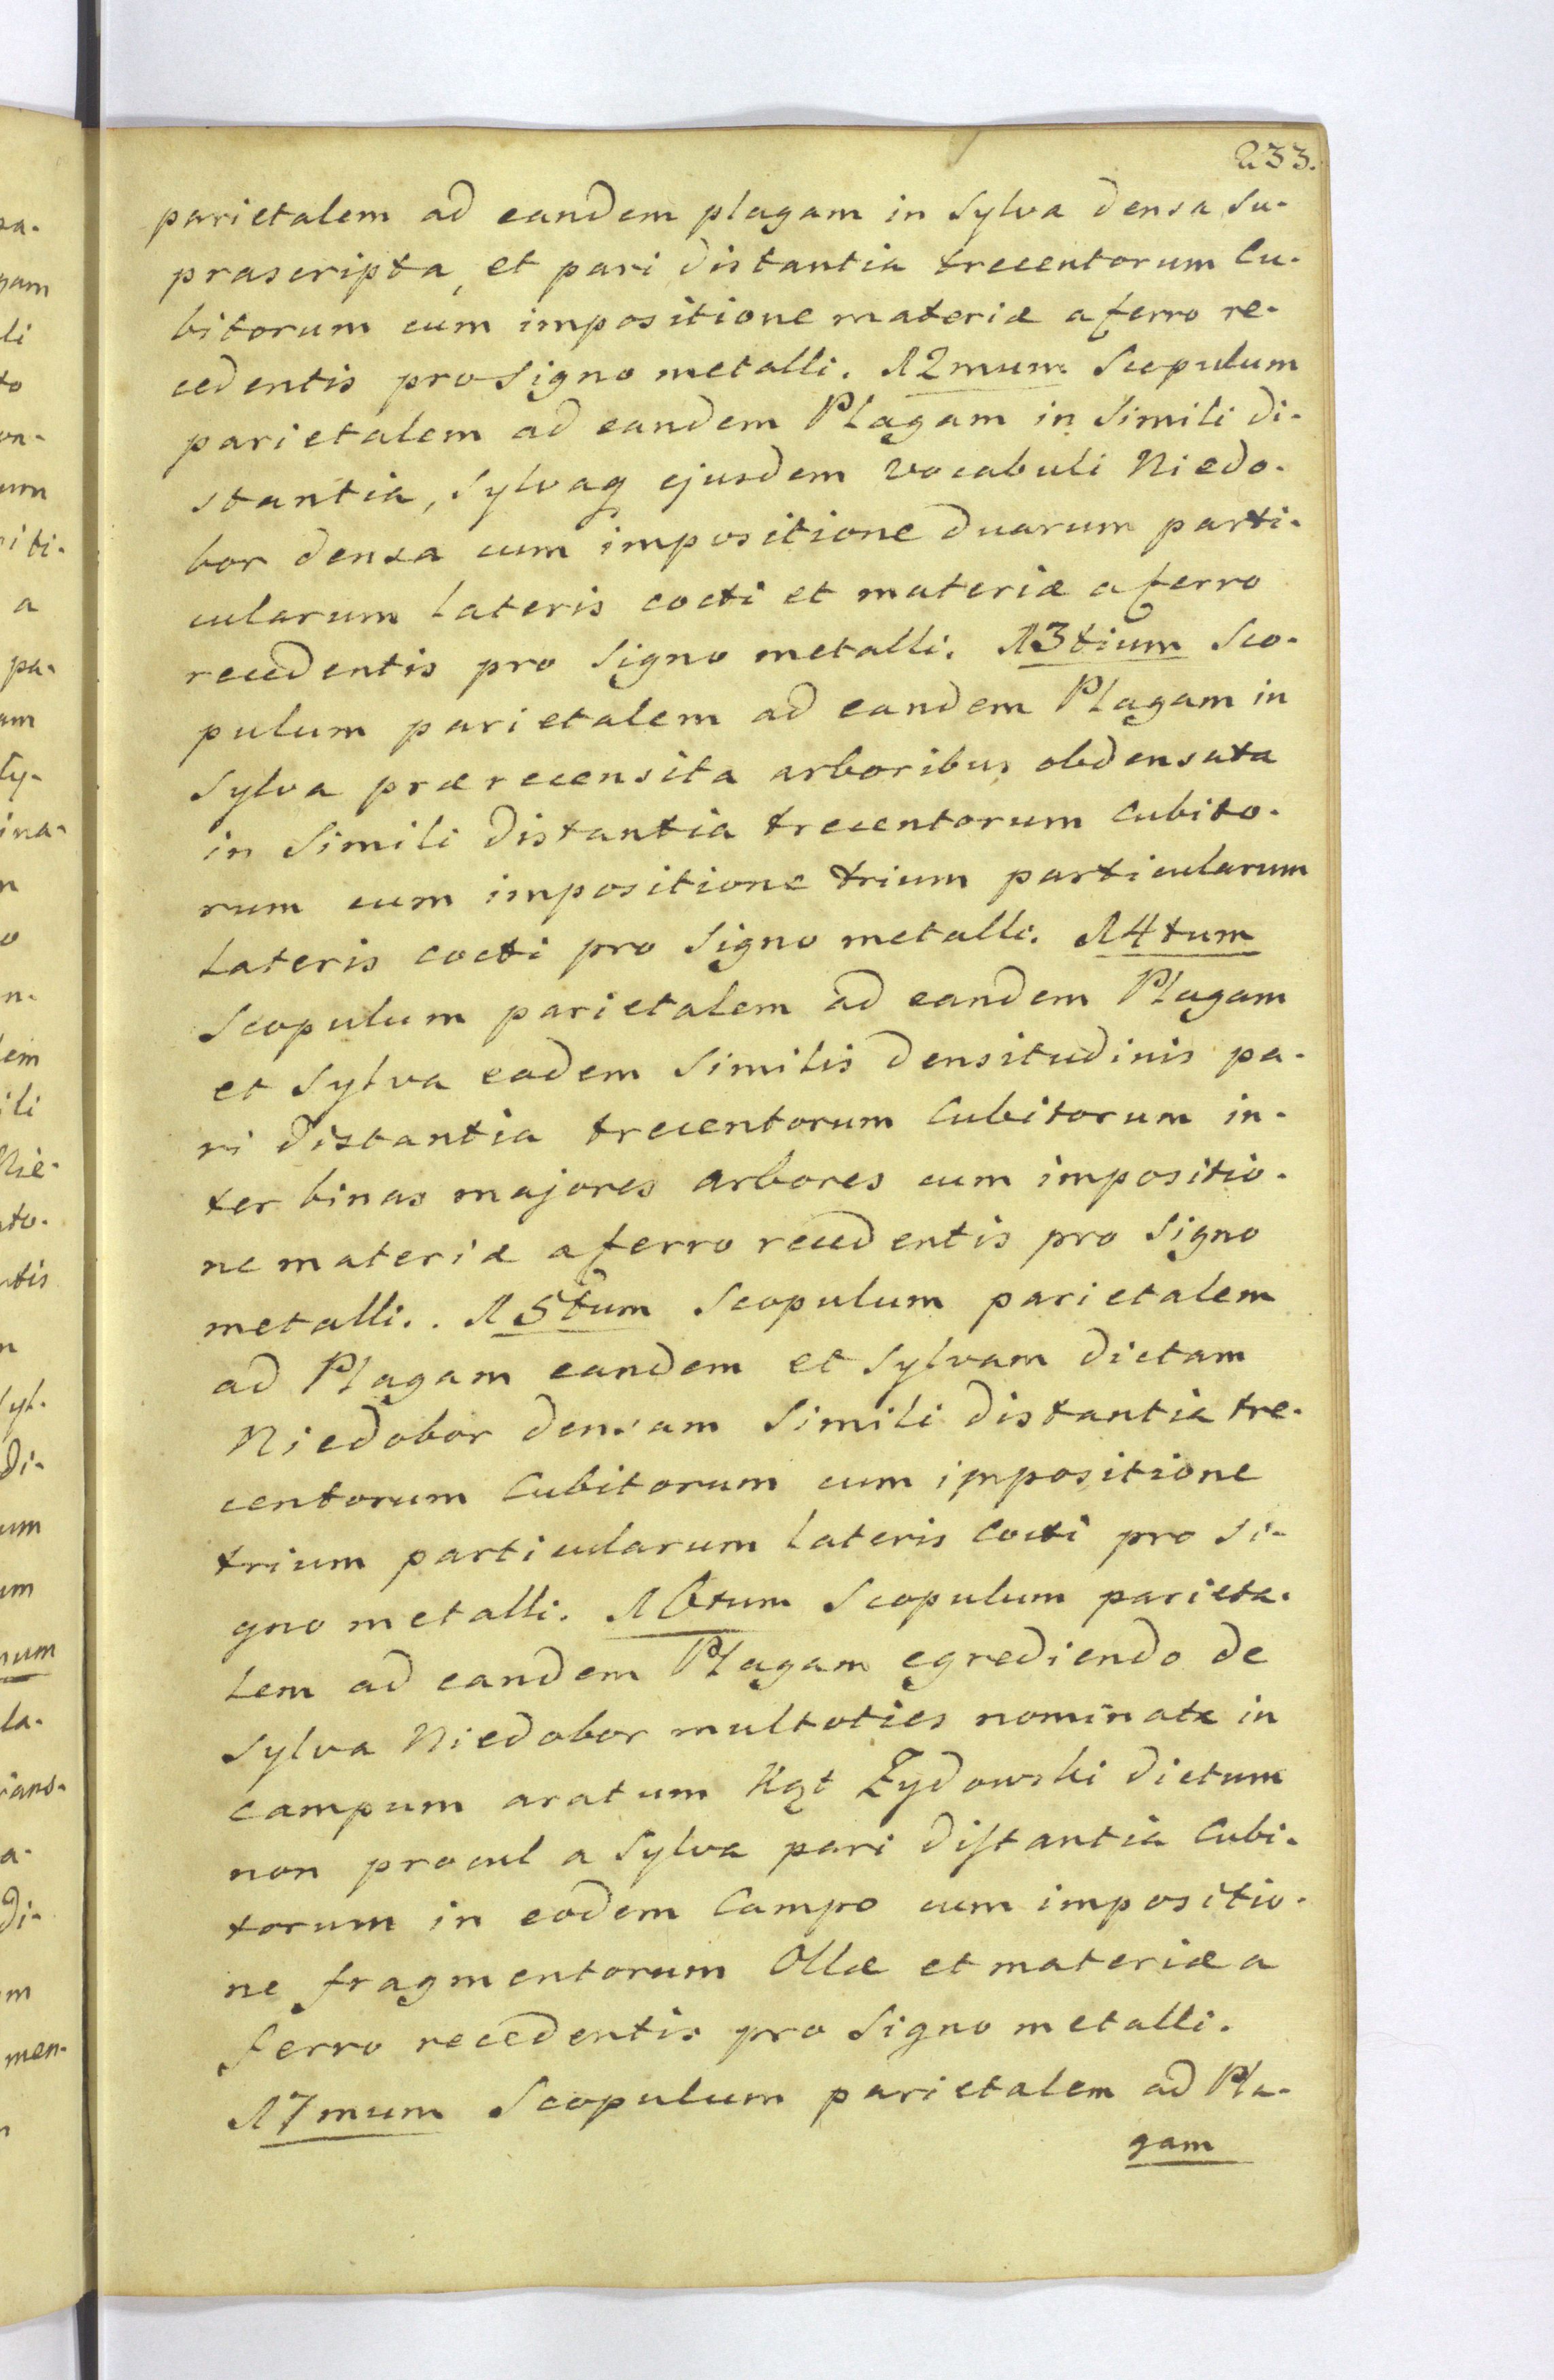 233.
parietalem ad eandem plagam in Sylva densa su-
prascripta, et pari distantia trecentorum Cu-
bitorum cum impositione materiæ a ferro re-
cedentis pro Signo metalli. 12mum Scopulum
parietalem ad eandem Plagam in Simili di-
stantia, Sylvaq ejusdem vocabuli Niedo-
bor densa cum impositione duarum parti-
cularum Lateris cocti et materiæ a ferro
recedentis pro Signo metalli. 13tium Sco-
pulum parietalem ad eandem Plagam in
Sylva prærecensita arboribus obdensata
in Simili distantia trecentorum Cubito-
rum cum impositione trium particularum
Lateris cocti pro Signo metalli. 14tum
Scopulum parietalem ad eandem Plagam
et Sylva eadem Similis densitudinis pa-
ri distantia trecentorum Cubitorum in-
ter binas majores arbores cum impositio-
ne materiæ a ferro recedentis pro Signo
metalli.. 15tum Scopulum parietalem
ad Plagam eandem et Sylvam dictam
Niedobor densam Simili distantia tre-
centorum Cubitorum cum impositione
trium particularum Lateris Cocti pro Si-
gno metalli. 16tum Scopulum parieta-
lem ad eandem Plagam egrediendo de
Sylva Niedobor multoties nominata in
campum aratum Kąt Żydowski dictum
non procul a Sylva pari distantia Cubi-
torum in eodem Campo cum impositio-
ne fragmentorum Ollæ et materiæ a
ferro recedentis pro Signo metalli.
17mum Scopulum parietalem ad Pla-
gam
pa-
gam
li
to
um
iti-
a
pa-
am
ly-
ina-
n
o
n-
dem
ili
Nie-
nto-
ntis
n
Syl-
di-
um
um
mum
la-
a-
di-
m
men-